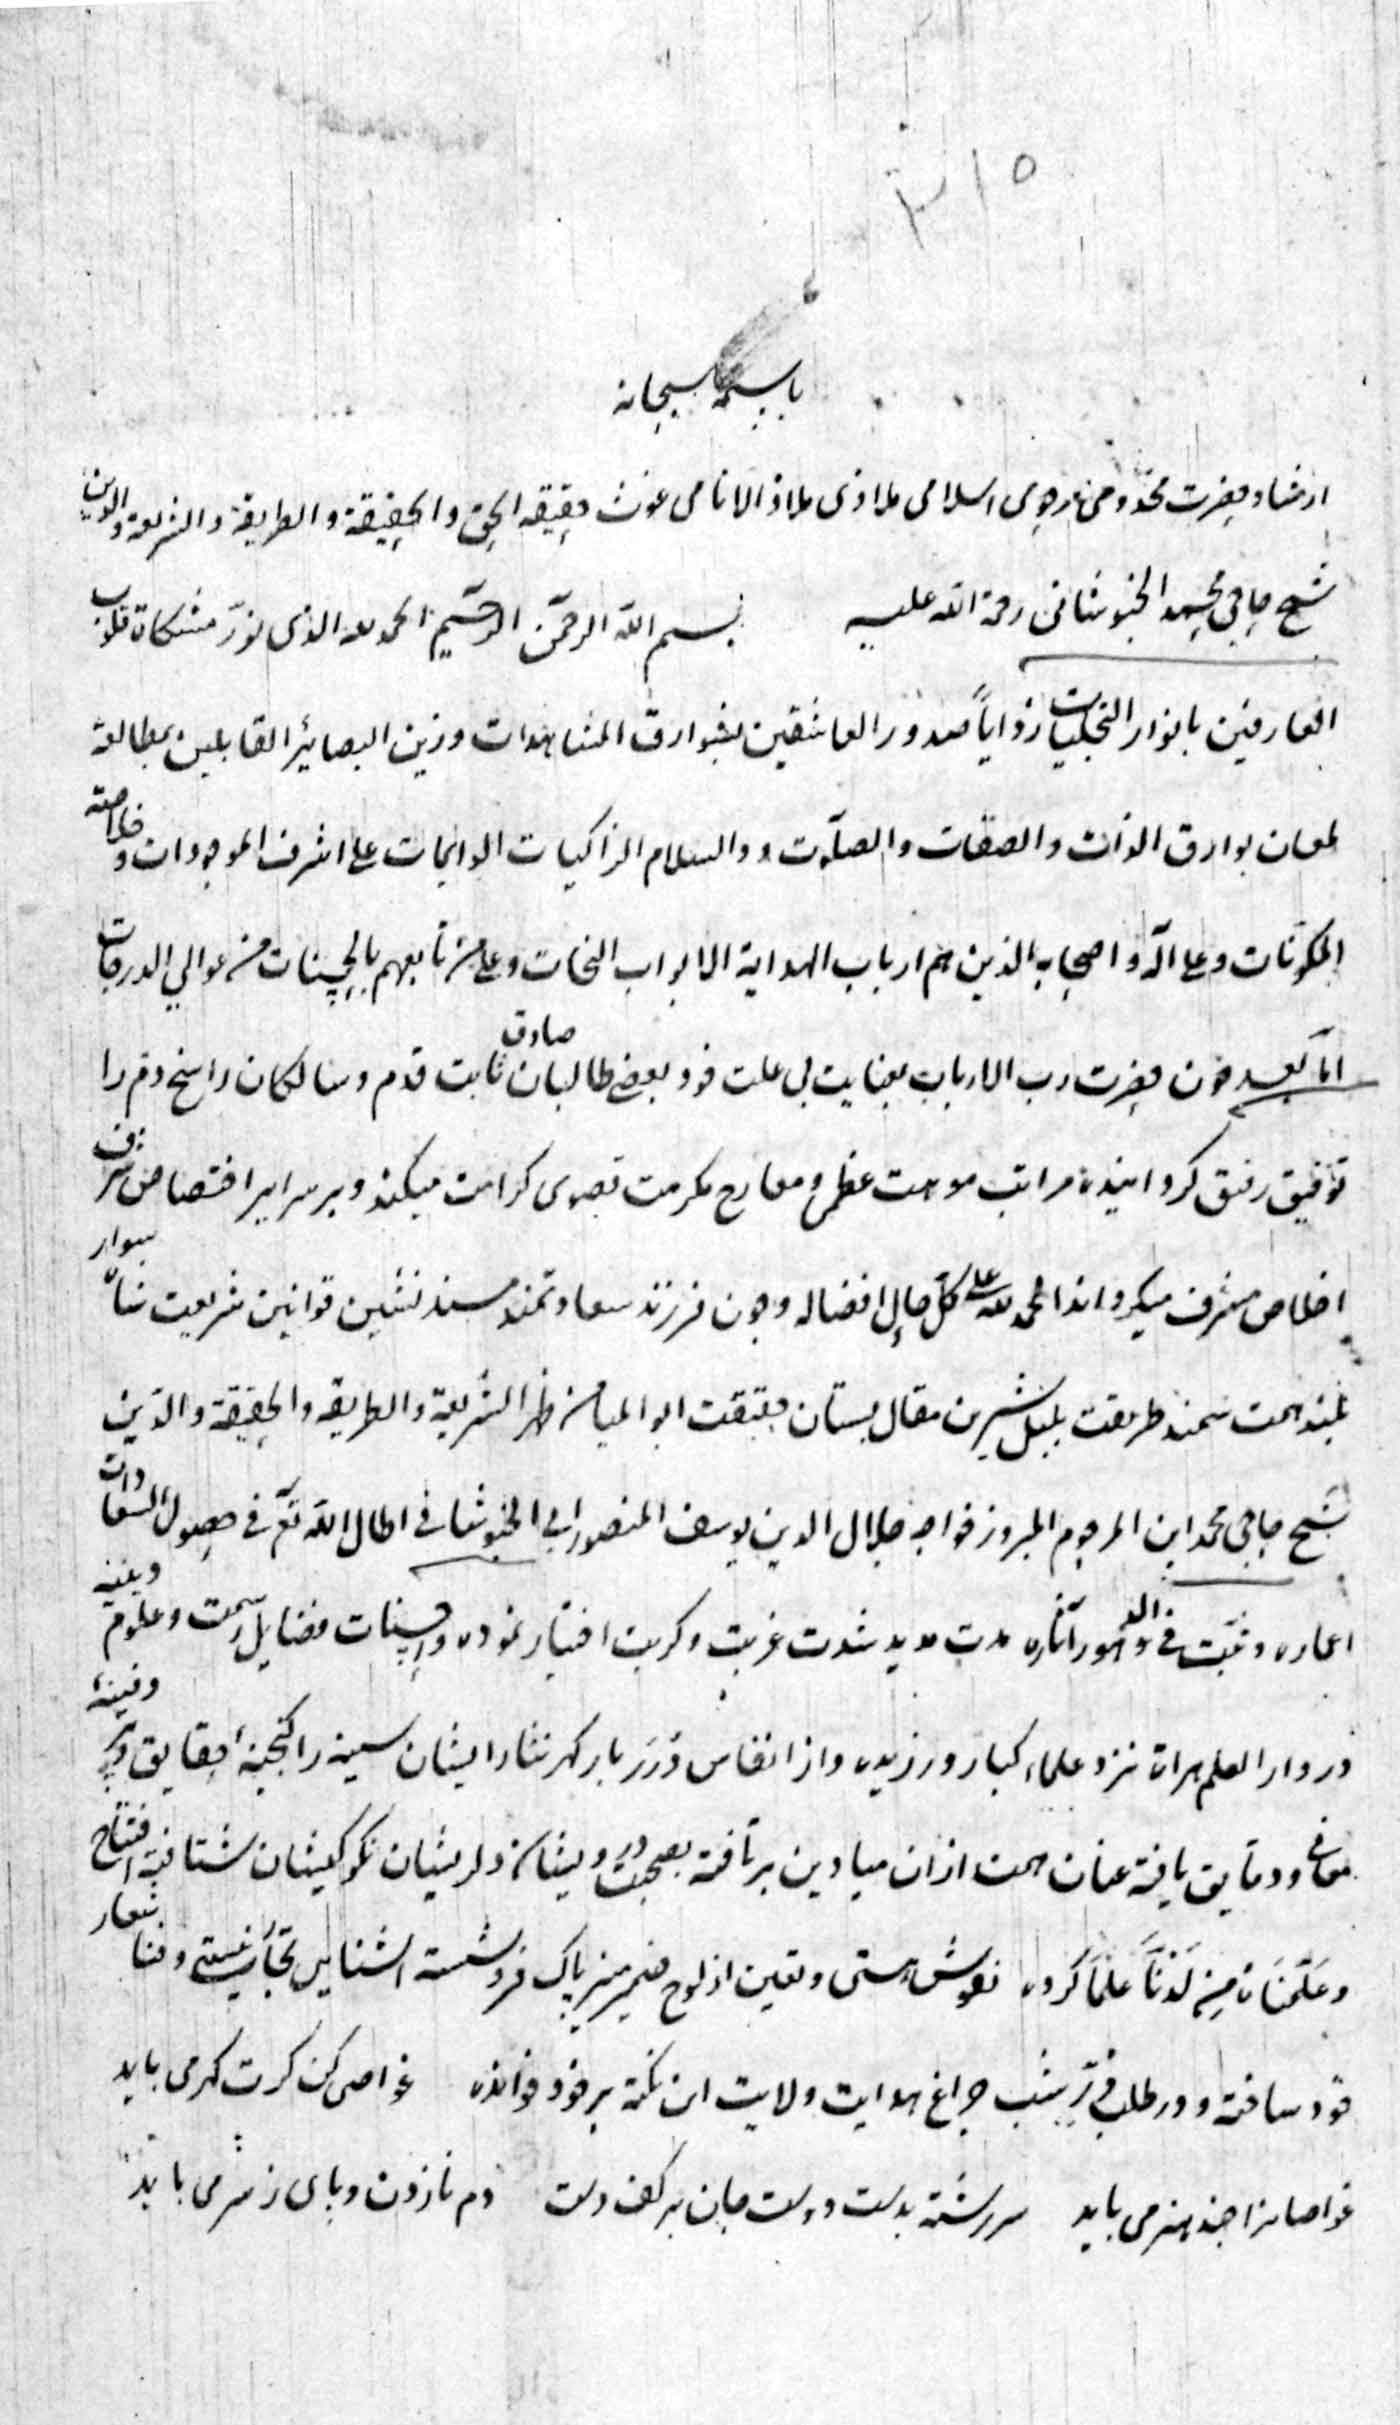 ۳۱۵
باسمه سبحانه
ارشاد حضرت مخدومی مرحومی اسلامی ملاذی ملاذ الانامی غوث حقیقه الحق والحقیقة والطریقة والشریعة والدین
شیخ حاجی محمد الخبوشانی رحمة الله علیه بسم الله الرحمن الرحیم الحمد لله الذی نوّر مشکاة قلوب
العارفین بانوار التجلیات زوایاً صدور العاشقین بشوارق المشاهدات وزین البصائر القابلین بمطالعة
لمعان بوارق الذات والصفات والصلوت و والسلام الزاکیات الدایمات علی اشرف الموجودات و خلاصة
المکوّنات وعلی آله و اصحابه الذین هم ارباب الهدایة الا بواب النجات وعلی من تابعهم بالحسنات من عوالي الدرجات
امّا بعد چون حضرت رب الارباب بعنایت بی علت خود بعضی طالبان صادق ثابت قدم وسالکان راسخ دم را
توفیق رفیق کردانیده مراتب موهبت عظمی و معارج مکرمت قصوی کرامت میکند و بر سرایر اختصاص شرف
اخلاص مشرف میکرداند الحمد لله علی کل حال افضاله و چون فرزند سعادتمند مسند نشین قوانین شریعت شاه سوار
بلند همت سمند طریقت بلبل شیرین مقال بستان حقیقت ابو المیامن ظهر الشریعة والطریقه والحقیقة والدین
شیخ حاجی محمد ابن المرحوم المبرور خواجه جلال الدین یوسف المنصور ابی الخبوشانی اطال الله تع فی حصول السعادات
اعماره و ثبّت فی الدهور آثاره مدت مدید شدت غربت و کربت اختیار نموده و حسنات فضایل سمت و علوم دینیه
در دار العلم هراة نزد علماء کبار ورزیده و از انفاس دُرَر بار کهر نثار ایشان سینه را کنجینه حقایق و دفینهٔ
معانی و دقایق یافته عنان همت ازان میادین بر تافته بصحبت درویشان دلریشان نکو کیشان شتافته افتتاح
و عَلَّمنَاه مِن لَدُنَّا عِلمَاً کرده نقوش هستی و تعین از لوح ضمیر منیر پاک فرو شسته نیستی و فنا شعار
خود ساخته و در طلب شب چراغ هدایت ولایت این نکته بر خود خوانده غواصی کن کرت کهر می باید
غواصانرا چند هنر می باید سررشته بدست دوست جان بر کف دست دم نازدن و پای ز سر می باید